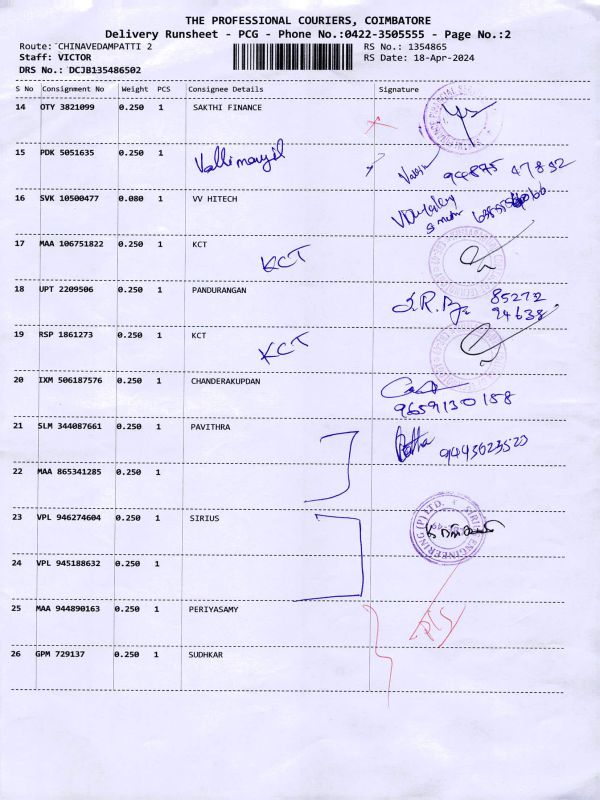 THE PROFESSIONAL COURIERS, COIMBATORE
Delivery Runsheet - PCG - Phone No.:0422-3505555 - Page No.:2
Route: CHINAVEDAMPATTI 2 RS No.: 1354865
Staff: VICTOR RS Date: 18-Apr-2024
DRS No.: DCJB135486502
S No Consignment No Weight PCS Consignee Details Signature
14 OTY 3821099 0.250 1 SAKTHI FINANCE
15 PDK 5051635 0.250 1 Vallimayil 94875 47832
16 SVK 10500477 0.080 1 VV HITECH
17 MAA 106751822 0.250 1 KCT
KCT
18 UPT 2209506 0.250 1 PANDURANGAN 85272
94638
19 RSP 1861273 0.250 1 KCT
KCT
20 IXM 506187576 0.250 1 CHANDERAKUPDAN
9659130158
21 SLM 344087661 0.250 1 PAVITHRA
9443623523
22 MAA 865341285 0.250 1
23 VPL 946274604 0.250 1 SIRIUS
ENGINEERING (P) LTD.
24 VPL 945188632 0.250 1
25 MAA 944890163 0.250 1 PERIYASAMY
26 GPM 729137 0.250 1 SUDHKAR